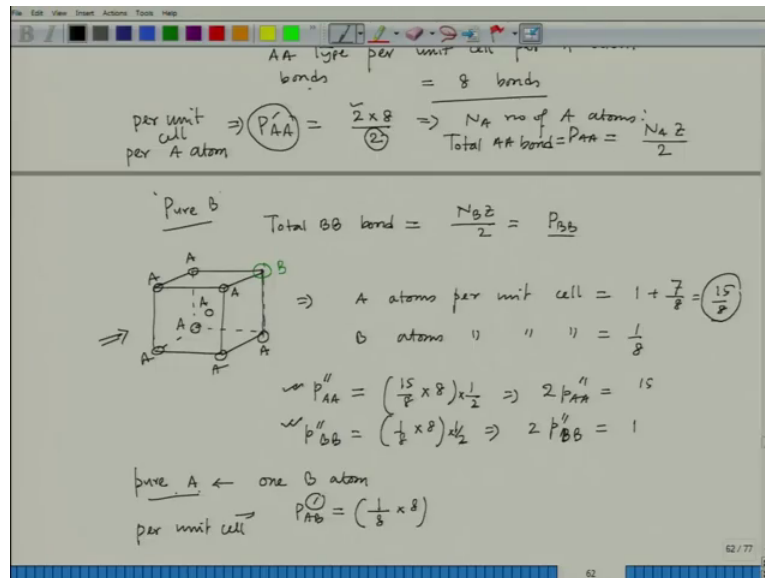 File Edit View Insert Actions Tools Help
AA Type per unit cell per
bonds = 8 bonds
per unit cell per A atom ⇒ P'AA = 2 x 8 / 2 ⇒ NA no of A atoms:
Total AA bond = PAA = NA Z / 2
'Pure B'
Total BB bond = NB Z / 2 = PBB
A A B
A A A
A A A
⇒ A atoms per unit cell = 1 + 7/8 = 15/8
B atoms " " " = 1/8
P''AA = (15/8 x 8) x 1/2 ⇒ 2 P''AA = 15
P''BB = (1/8 x 8) x 1/2 ⇒ 2 P''BB = 1
pure A ← one B atom
per unit cell → PAB = (1/8 x 8)
62 / 77
62